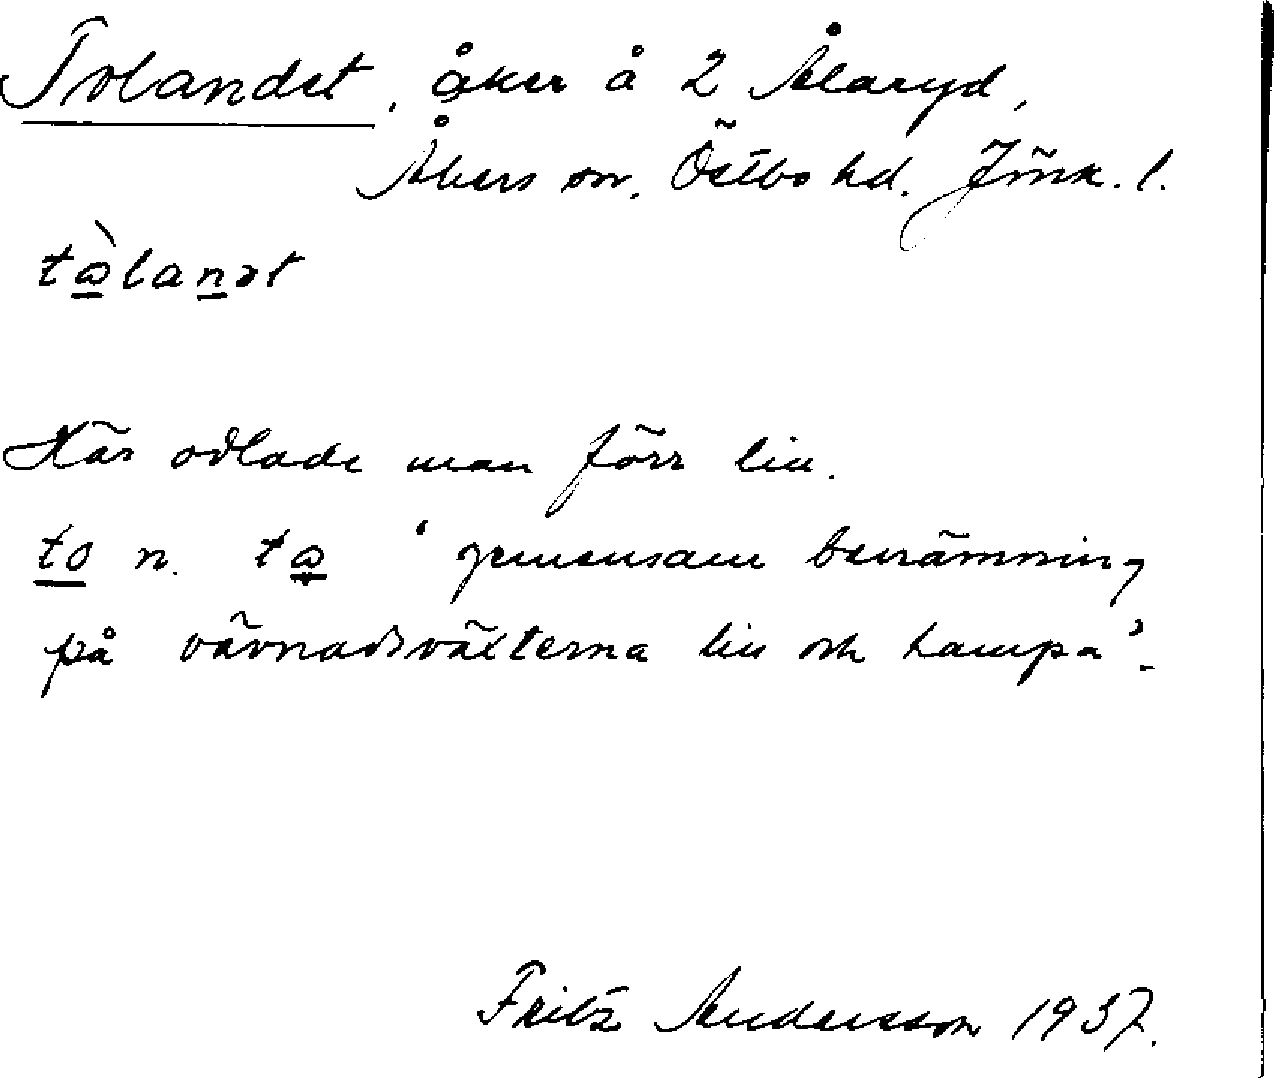 Tolandet, åker å 2 Ålaryd,
Åkers sn. Östbo hd. Jönk. l.
tàlanət
Här odlade man förr lin.
to n. ta ‘gemensam benämning
på vävnadsväxterna lin och hampa’.
Fritz Andersson 1937.